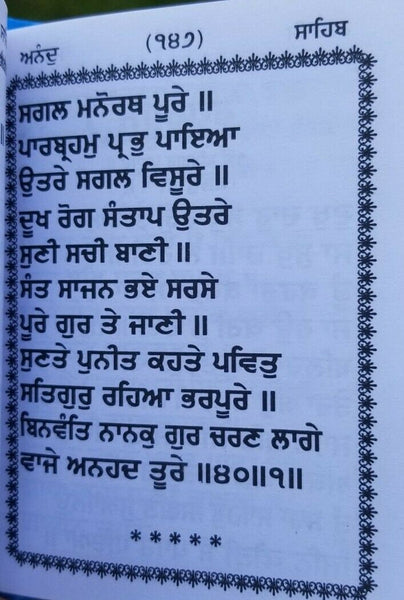 ਅਨੰਦੁ (੧੪੭) ਸਾਹਿਬ
ਸਗਲ ਮਨੋਰਥ ਪੂਰੇ ॥
ਪਾਰਬ੍ਰਹਮੁ ਪ੍ਰਭੁ ਪਾਇਆ
ਉਤਰੇ ਸਗਲ ਵਿਸੂਰੇ ॥
ਦੂਖ ਰੋਗ ਸੰਤਾਪ ਉਤਰੇ
ਸੁਣੀ ਸਚੀ ਬਾਣੀ ॥
ਸੰਤ ਸਾਜਨ ਭਏ ਸਰਸੇ
ਪੂਰੇ ਗੁਰ ਤੇ ਜਾਣੀ ॥
ਸੁਣਤੇ ਪੁਨੀਤ ਕਹਤੇ ਪਵਿਤੁ
ਸਤਿਗੁਰੁ ਰਹਿਆ ਭਰਪੂਰੇ ॥
ਬਿਨਵੰਤਿ ਨਾਨਕੁ ਗੁਰ ਚਰਣ ਲਾਗੇ
ਵਾਜੇ ਅਨਹਦ ਤੂਰੇ ॥੪੦॥੧॥
*****